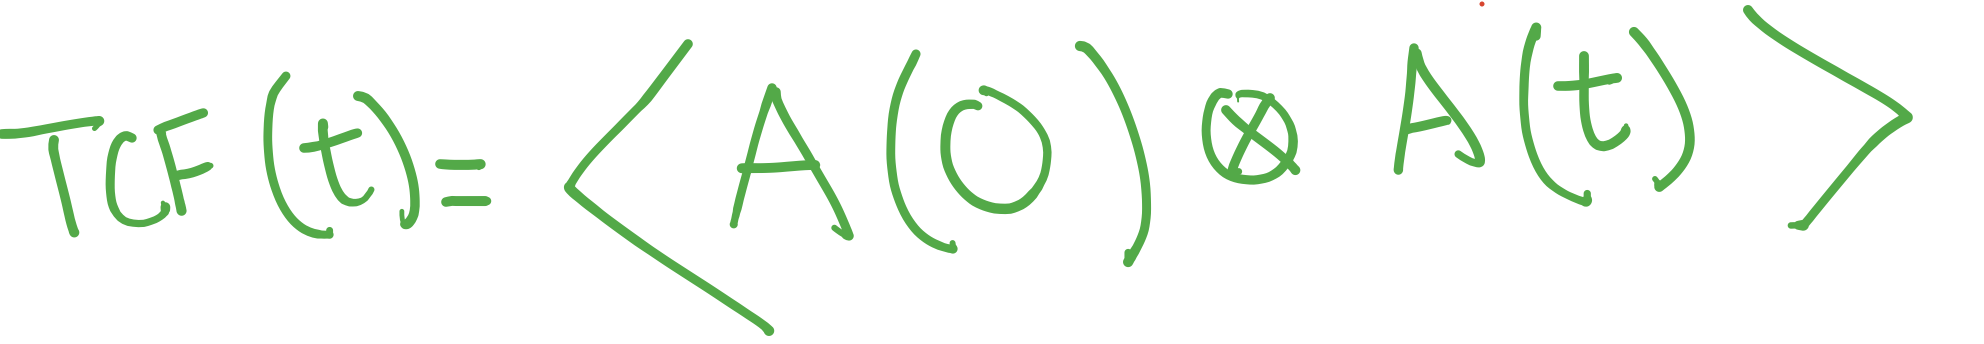 TCF(t) = <A(0) ⊗ A(t)>